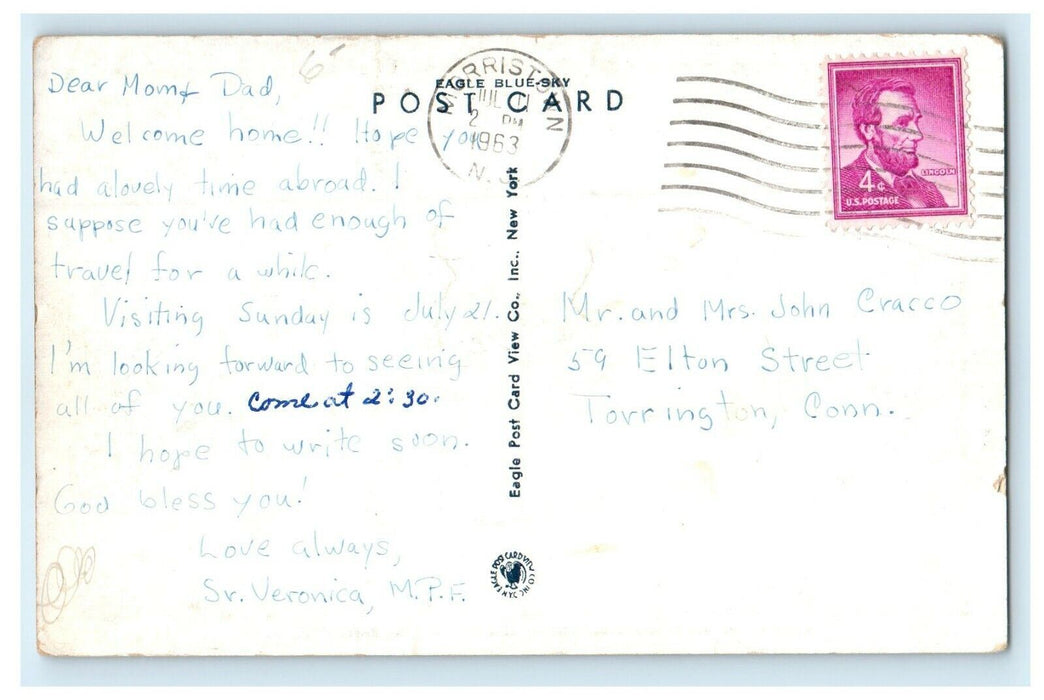 Dear Mom & Dad,
Welcome home!! Hope you
had a lovely time abroad. I
suppose you've had enough of
travel for a while.
Visiting Sunday is July 21.
I'm looking forward to seeing
all of you. Come at 2:30.
I hope to write soon.
God bless you!
Love always,
Sr. Veronica, M.P.F.
6-
EAGLE BLUE-SKY
POST CARD
MORRISTOWN
JUL 11
2 PM
1963
N.J.
LINCOLN
4¢
U.S. POSTAGE
Eagle Post Card View Co., Inc., New York
Mr. and Mrs. John Cracco
59 Elton Street
Torrington, Conn.